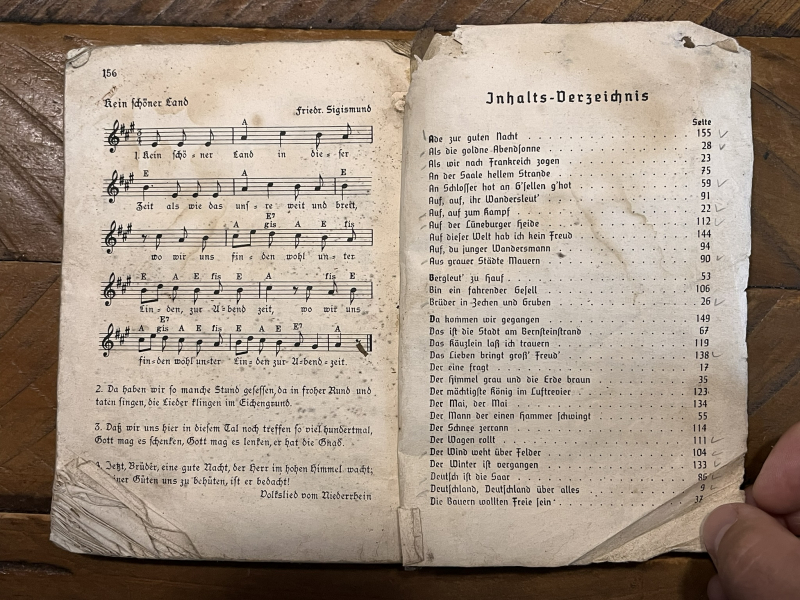 156
Kein schöner Land
Friedr. Sigismund
A
1. Kein schö = ner Land in die = ser
E A E
Zeit als wie das uns = re weit und breit,
E7
A gis A E fis
wo wir uns fin = den wohl un = ter
E A E fis E A fis E
Lin = den, zur A = bend zeit, wo wir uns
gis E7
A A E fis E A E A
fin = den wohl un = ter Lin = den zur A = bend = zeit.
2. Da haben wir so manche Stund gesessen, da in froher Rund und
taten singen, die Lieder klingen im Eichengrund.
3. Daß wir uns hier in diesem Tal noch treffen so viel hundertmal,
Gott mag es schenken, Gott mag es lenken, er hat die Gnad.
4. Jetzt, Brüder, eine gute Nacht, der Herr im hohen Himmel wacht;
Güten uns zu behüten, ist er bedacht!
Volkslied vom Niederrhein
Inhalts-Verzeichnis
Seite
Ade zur guten Nacht 155
Als die goldne Abendsonne 28
Als wir nach Frankreich zogen 23
An der Saale hellem Strande 75
An Schlosser hot an G'sellen g'hot 59
Auf, auf, ihr Wandersleut' 91
Auf, auf zum Kampf 22
Auf der Lüneburger Heide 112
Auf dieser Welt hab ich kein Freud 144
Auf, du junger Wandersmann 94
Aus grauer Städte Mauern 90
Bergleut' zu Hauf 53
Bin ein fahrender Gesell 106
Brüder in Zechen und Gruben 26
Da kommen wir gegangen 149
Das ist die Stadt am Bernsteinstrand 67
Das Käuzlein laß ich trauern 119
Das Lieben bringt groß' Freud' 138
Der eine fragt 17
Der Himmel grau und die Erde braun 35
Der mächtigste König im Luftrevier 123
Der Mai, der Mai 134
Der Mann der einen Hammer schwingt 55
Der Schnee zerrann 114
Der Wagen rollt 111
Der Wind weht über Felder 104
Der Winter ist vergangen 133
Deutsch ist die Saar 86
Deutschland, Deutschland über alles 9
Die Bauern wollten Freie sein 37